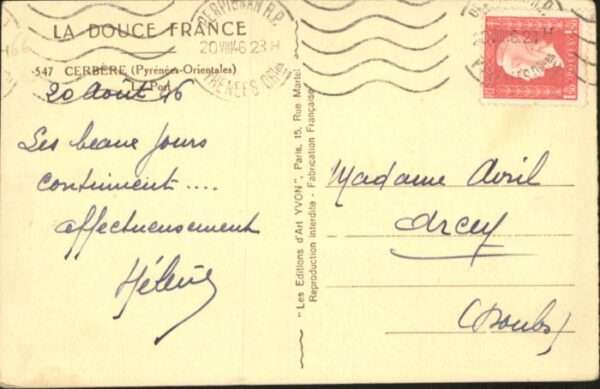 LA DOUCE FRANCE
547 CERBÈRE (Pyrénées-Orientales)
Le Port
PERPIGNAN R.P.
20 VIII 46 23H
PYRÉNÉES ORles
20 Août 46
Les beaux jours
continuent ....
affectueusement
Hélène
- Les Editions d'Art YVON", Paris, 15, Rue Martel -
Reproduction interdite - Fabrication Française
Madame Avril
Arcey
(Doubs)